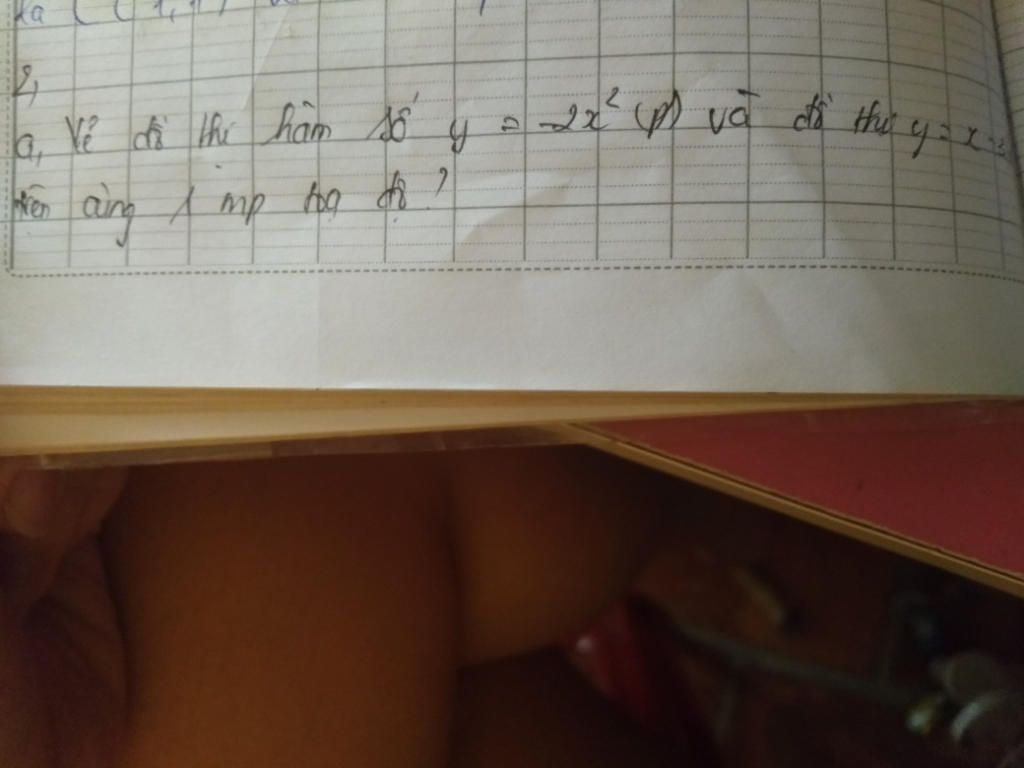 2,
a, Vẽ đồ thị hàm số y = -2x² (P) và đồ thị y = x -
trên cùng 1 mp toạ độ?